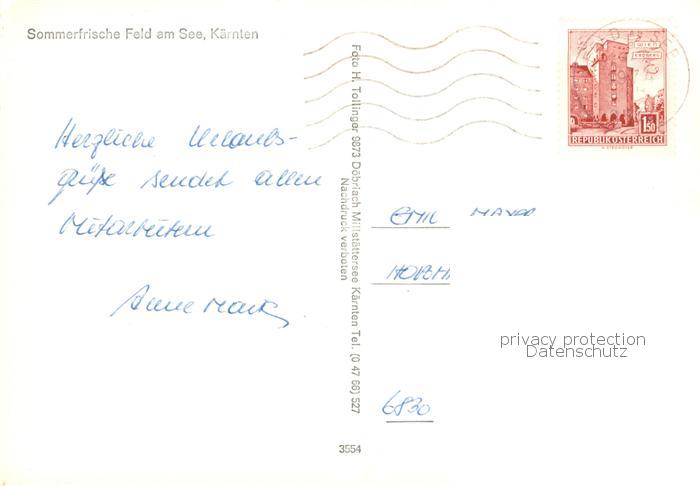 Sommerfrische Feld am See, Kärnten
WIEN
ERDBERG
1.50
REPUBLIK ÖSTERREICH
Herzliche Urlaubs-
grüße sendet allen
Mitarbeitern
Foto H. Tollinger 9873 Döbriach Millstättersee Kärnten Tel. (0 47 66) 527
Nachdruck verboten
EMIL
6830
privacy protection
Datenschutz
3554